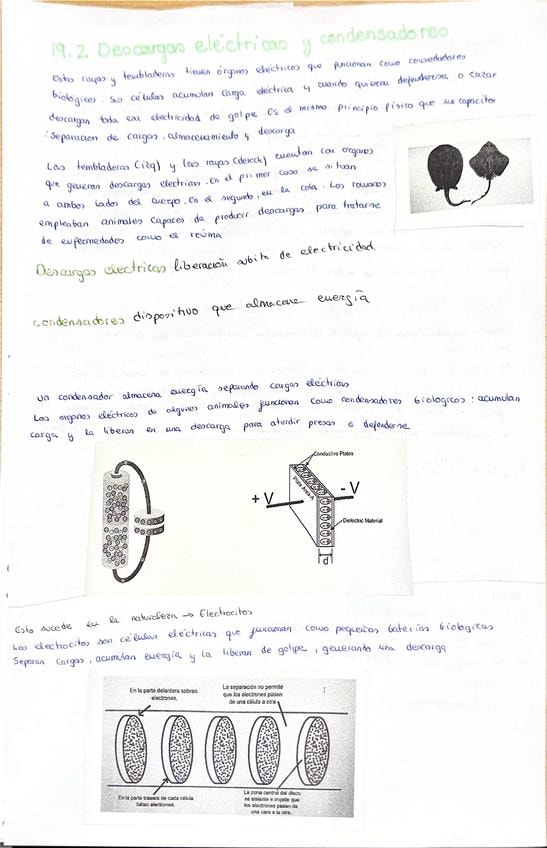 19.2 Descargas eléctricas y condensadores
Estas rayas y tembladeras tienen órganos eléctricos que funcionan como condensadores
biológicos. Sus células acumulan carga eléctrica y cuando quieren defenderse o cazar
descargan toda esa electricidad de golpe. Es el mismo principio físico que un capacitor
: Separacion de cargas, almacenamiento y descarga
Las tembladeras (izq) y las rayas (derech) cuentan con organos
que generan descargas electricas. En el primer caso se situan
a ambos lados del cuerpo. En el segundo, en la cola. Los romanos
empleaban animales capaces de producir descargas para tratarse
de enfermedades como el reúma
Descargas electricas liberación subita de electricidad
condensadores dispositivo que almacena energía
un condensador almacena energía separando cargas eléctricas
Los organos eléctricos de algunos animales funcionan como condensadores biologicos : acumulan
carga y la liberan en una descarga para aturdir presas o defenderse
Conductive Plates
Plate Area A
+ V
- V
Dielectric Material
d
Esto sucede en la naturaleza → Electrocitos
Los electrocitos son células eléctricas que funcionan como pequeñas baterías biologicas
Separan cargas, acumulan energía y la liberan de golpe, generando una descarga
En la parte delantera sobran
electrones.
La separación no permite
que los electrones pasen
de una célula a otra
En la parte trasera de cada célula
faltan electrones.
La zona central del disco
es aislante e impide que
los electrones pasen de
una cara a la otra.